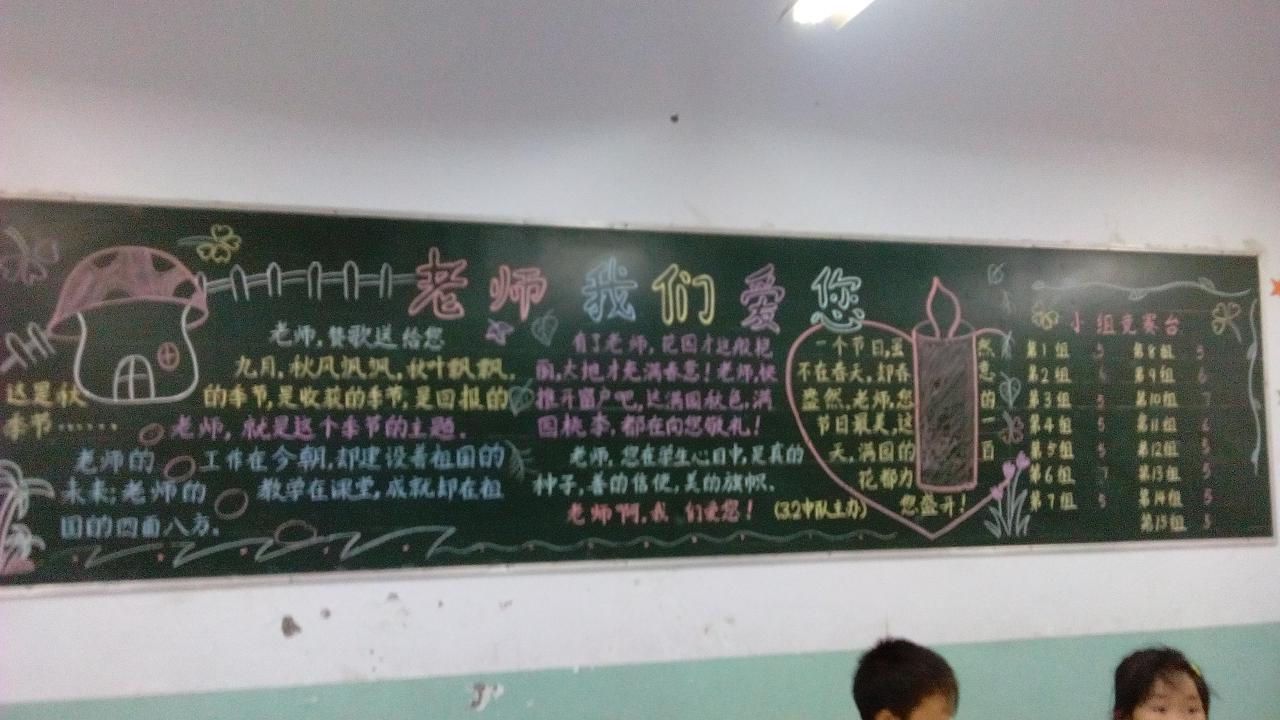 老师 我们 爱 您
老师,赞歌送给您
九月,秋风飒飒,秋叶飘飘,
这是秋 的季节,是收获的季节,是回报的
季节…… 老师,就是这个季节的主题。
老师的 工作在今朝,却建设着祖国的
未来;老师的 教学在课堂,成就却在祖
国的四面八方。
有了老师,花园才这般艳
丽,大地才充满春意!老师,快
推开窗户吧,这满园秋色,满
园桃李,都在向您敬礼!
老师,您在学生心目中,是真的
种子,善的信使,美的旗帜。
老师啊,我 们爱您!
(3.2中队主办)
一个节日,虽 然
不在春天,却春 意
盎然,老师,您 的
节日最美,这 一
天,满园的 百
花都为
您盛开!
小组竞赛台
第1组 第8组
第2组 第9组
第3组 第10组
第4组 第11组
第5组 第12组
第6组 第13组
第7组 第14组
第15组